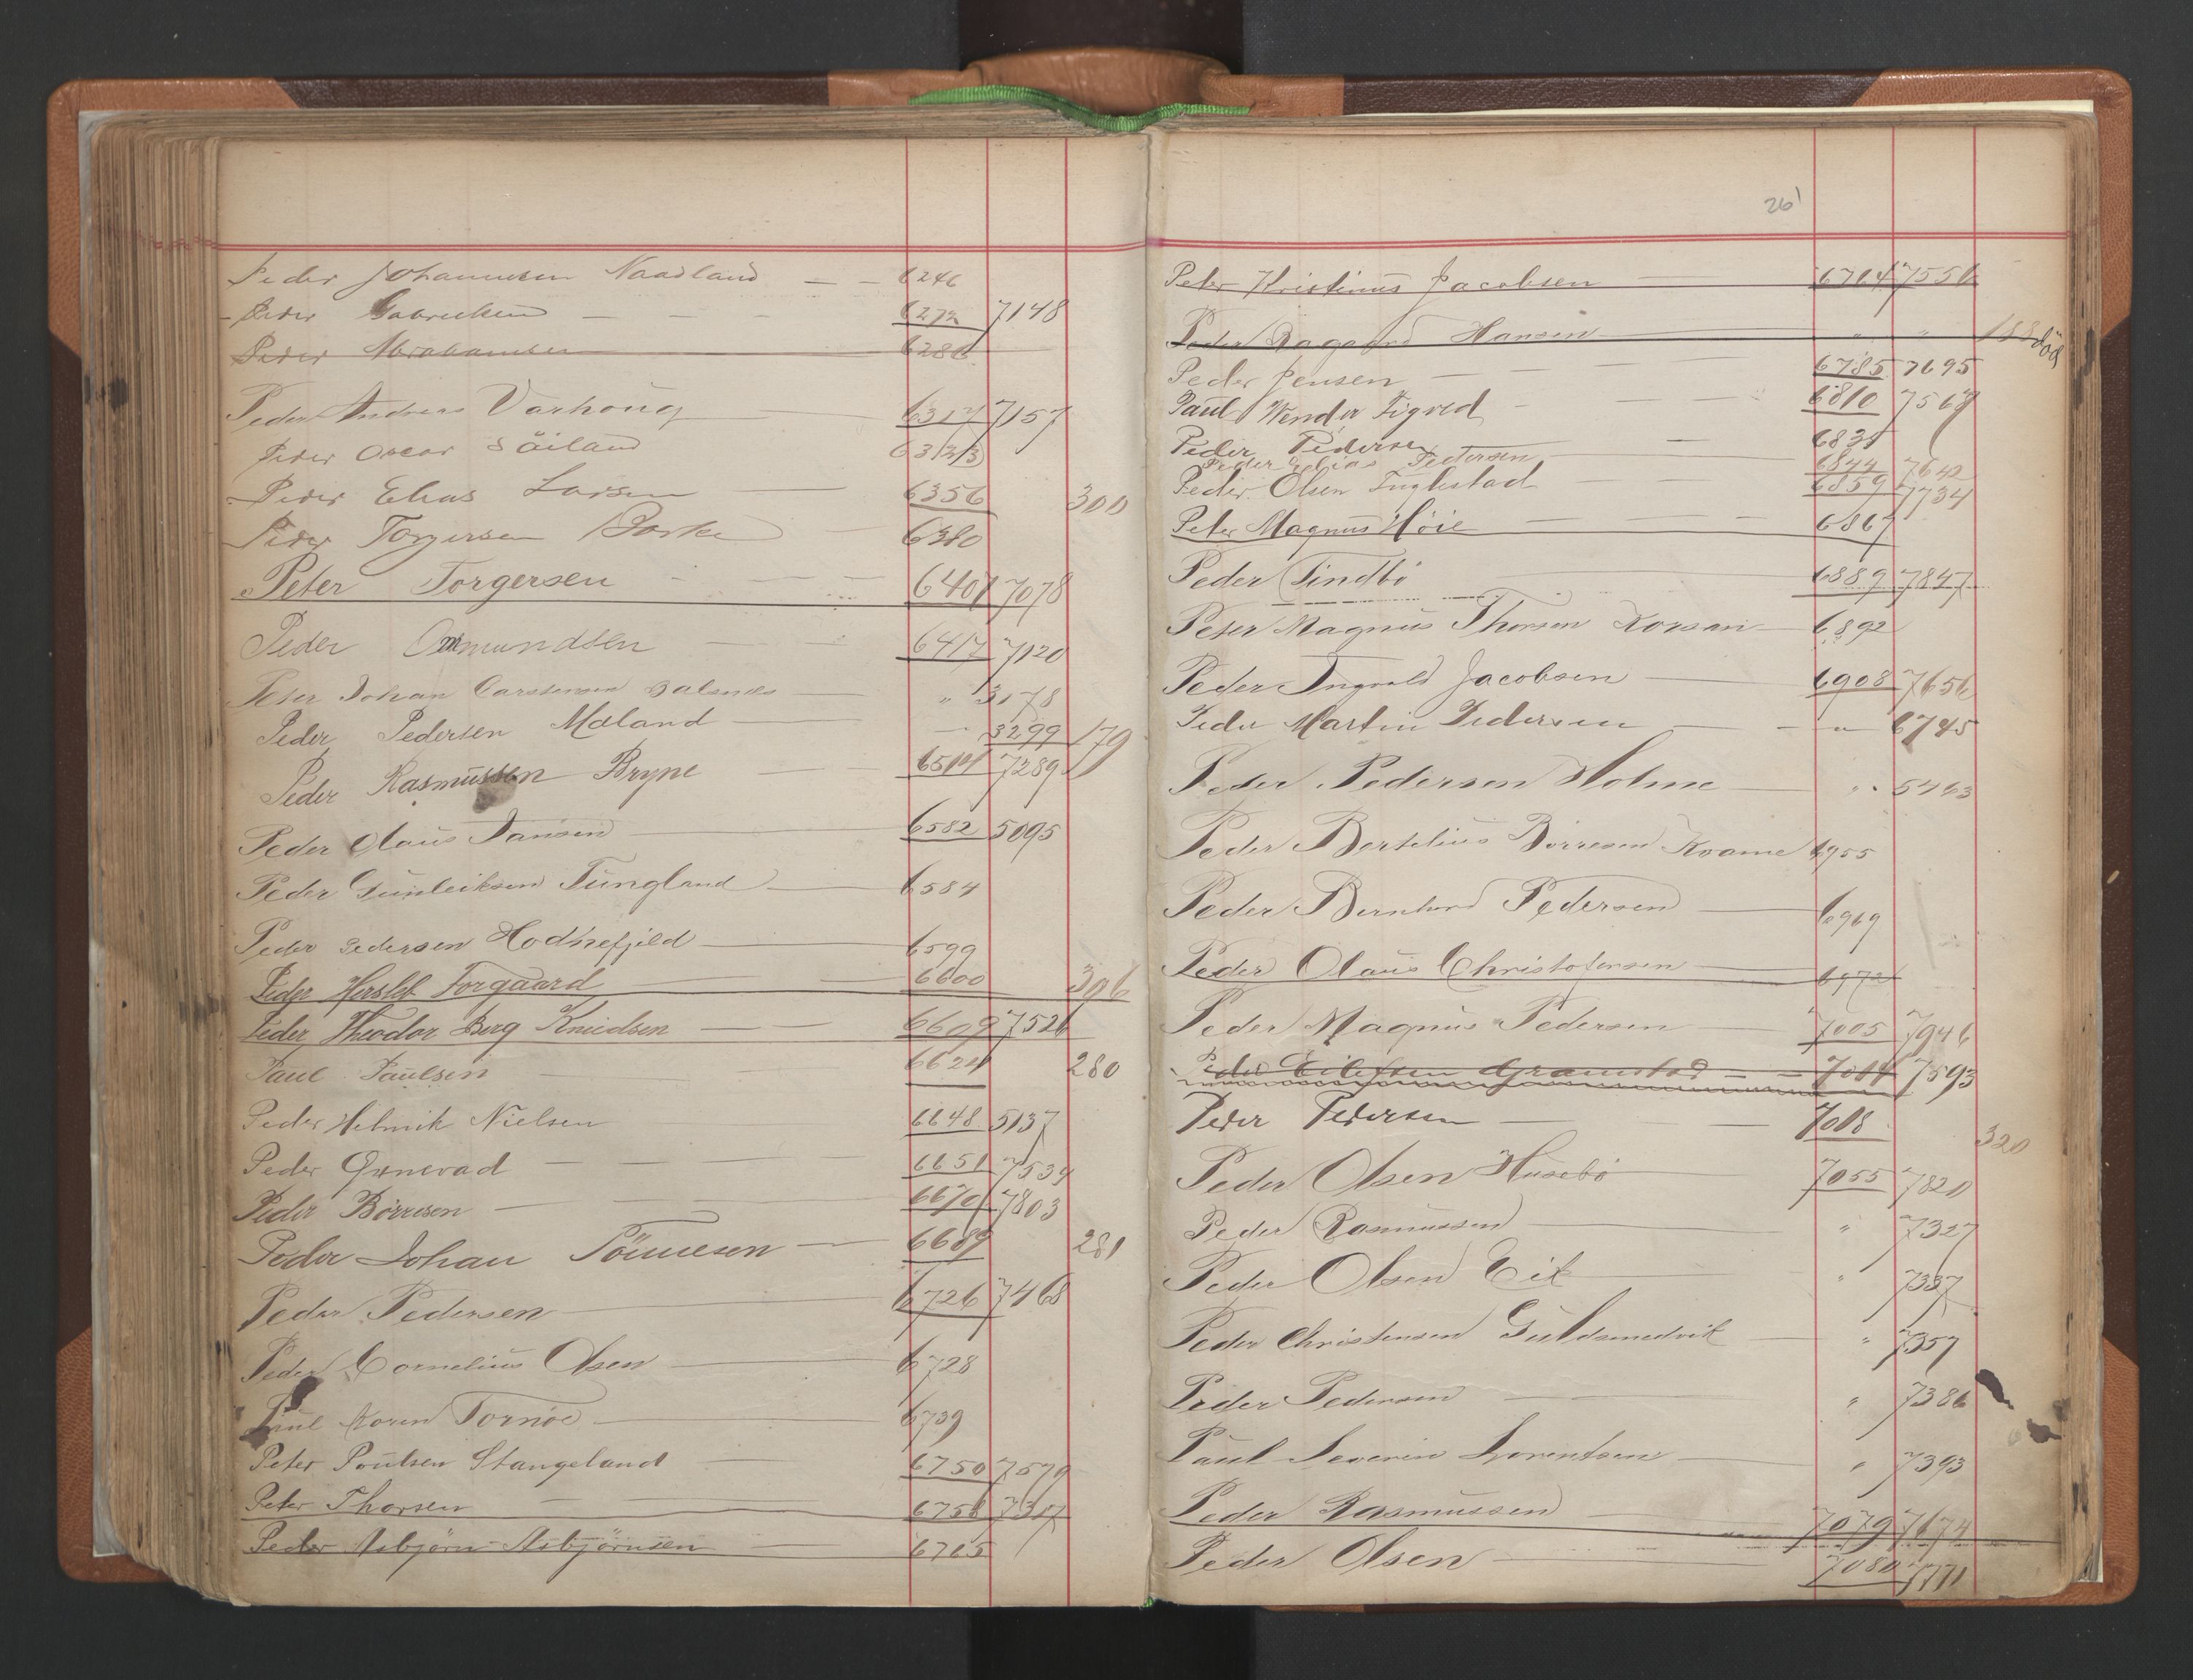 Peder Johannesen Naadland — — 6246
Peder Gabrielsen — — — 6272 7148
Peder Abrahamsen 6286
Peder Andreas Varhoug 6317 7157
Peder Oscar Söiland 6323
Peder Elias Larsen — 6356 300
Peder Torgersen — 6380
Peter Torgersen - — — 6401 7078
Peder Osmundsen — 6417 7120
Peter Johan Carstensen — " 3178
Peder Pedersen Mæland — — 3299 179
Peder Rasmussen Bryne — 6514 7289
Peder Olaus Jansen — 6582 5095
Peder Gunleiksen Tungland — 6584
Peder Pedersen Hodnefjeld — 6599
Peder Hersleb Forgaard — 6600 306
Peder Theodor Berg Knudsen — — 6609 7526
Paul Paulsen — 6624 280
Peder Helmik Nielsen 6648 5137
Peder Ornevad — — — 6651 7539
Peder Börresen — 6670 7803
Peder Johan Tönnesen — 6689 281
Peder Pedersen — 6726 7468
Peder Cornelius Olsen — 6728
Paul Koren Tornöe — 6739
Peter Poulsen Stangeland — 6750 7579
Peter Thorsen — — 6758 7317
Peder Asbjörn Asbjörnsen — 6765
261
Peter Kristinus Jacobsen — 6764 7556
Peder Aagaard Hansen — " " 188 död
Peder Jensen — — — 6785 7695
Paul Wender Tigved - — — 6810 7568
Peder Pedersen — — 6831
Peder Elias Pedersen — 6844 7642
Peder Olsen Tuglestad — 6859 7734
Peter Magnus Höie — — — 6867
Peder Tindbö — 6889 7847
Peter Magnus Thorsen — 6892
Peder Ingvald Jacobsen — 6908 7656
Peder Martin Pedersen — - " 6745
Peder Pedersen Holme — " 5463
Peder Bertelius Börresen Kvame 6955
Peder Bernhard Pedersen — 6969
Peder Olaus Christofersen — 6972
Peder Magnus Pedersen — 7005 7946
Peder Eilefsen Gramstad — — 7014 7593
Peder Pedersen — — 7018 320
Peder Olsen Husebö 7055 7820
Peder Rasmussen — " 7327
Peder Olsen Eik — " 7337
Peder Christensen Guldsmedvik — " 7357
Peder Pedersen — " 7386
Paul Severin Lorentsen — " 7393
Peder Rasmussen — 7079 7674
Peder Olsen — 7080 7771